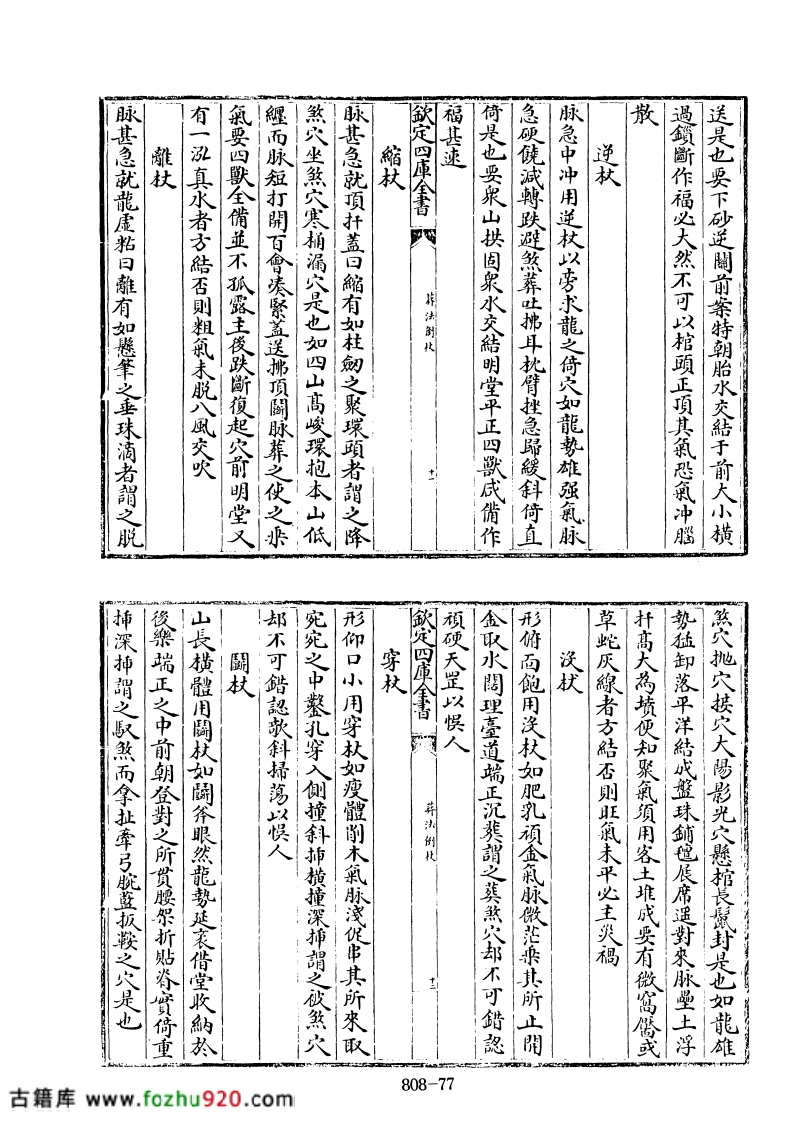 送是也要下砂逆關前案特朝胎水交結于前大小橫
過鎖斷作福必大然不可以棺頭正頂其氣恐氣冲腦
散
逆杖
脉急中冲用逆杖以旁求龍之倚穴如龍勢雄强氣脉
急硬饒減轉跌避煞葬吐拂耳枕臂挫急歸緩斜倚直
倚是也要衆山拱固衆水交結明堂平正四獸咸備作
福甚速
欽定四庫全書
葬法倒杖
十一
縮杖
脉甚急就頂扦蓋曰縮有如柱劒之聚環頭者謂之降
煞穴坐煞穴寒桶漏穴是也如四山高峻環抱本山低
纒而脉短打開百會凑緊蓋送拂頂鬭脉葬之使之乗
氣要四獸全備並不孤露主後跌斷復起穴前明堂又
有一泓真水者方結否則粗氣未脱八風交吹
離杖
脉甚急就龍虛粘曰離有如懸筆之垂珠滴者謂之脱
煞穴抛穴接穴大陽影光穴懸棺長鬛封是也如龍雄
勢猛卸落平洋結成盤珠鋪氊展席遥對來脉壘土浮
扦高大為墳便知聚氣須用客土堆成要有微窩靨或
草蛇灰線者方結否則旺氣未平必主災禍
沒杖
形俯面飽用沒杖如肥乳頑金氣脉微茫乗其所止開
金取水闊理臺道端正沉葬謂之葬煞穴却不可錯認
頑硬天罡以悞人
欽定四庫全書
葬法倒杖
十二
穿杖
形仰口小用穿杖如瘦體削木氣脉淺促串其所來取
宛宛之中鑿孔穿入側撞斜揷橫撞深揷謂之破煞穴
却不可錯認欹斜掃蕩以悞人
鬭杖
山長橫體用鬭杖如鬭斧眼然龍勢延袤借堂收納於
後樂端正之中前朝登對之所貫腰架折貼脊實倚重
揷深揷謂之馭煞而拿扯牽弓腕藍扳鞍之穴是也
808-77
古籍库 www.fozhu920.com